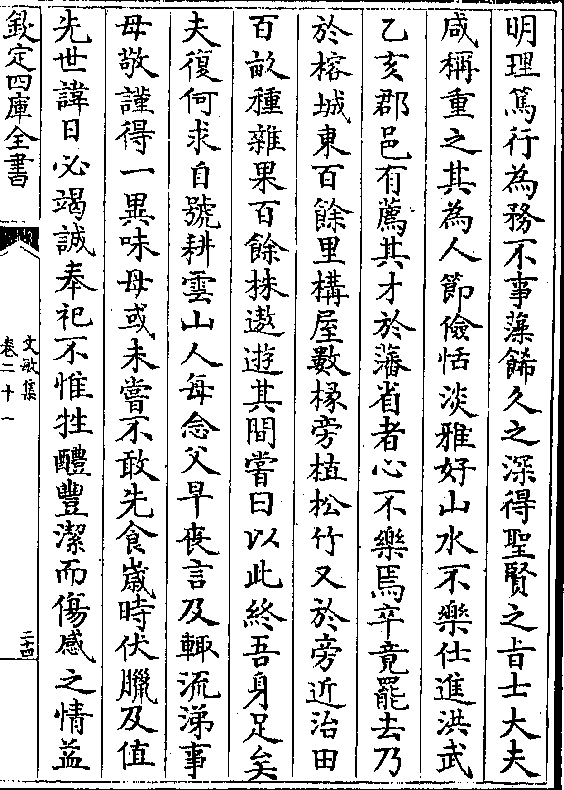 明理篤行為務不事藻餙久之深得聖賢之㫖士大夫
咸稱重之其為人節儉恬淡雅好山水不樂仕進洪武
乙亥郡邑有薦其才於藩省者心不樂焉卒竟罷去乃
於榕城東百餘里構屋數椽旁植松竹又於旁近治田
百畝種雜果百餘株遨遊其間嘗曰以此終吾身足矣
夫復何求自號耕雲山人每念父早喪言及輙流涕事
母敬謹得一異味母或未嘗不敢先食嵗時伏臘及值
先世諱日必竭誠奉祀不惟牲醴豐潔而傷感之情益
欽定四庫全書
文敏集
卷二十一
二十四